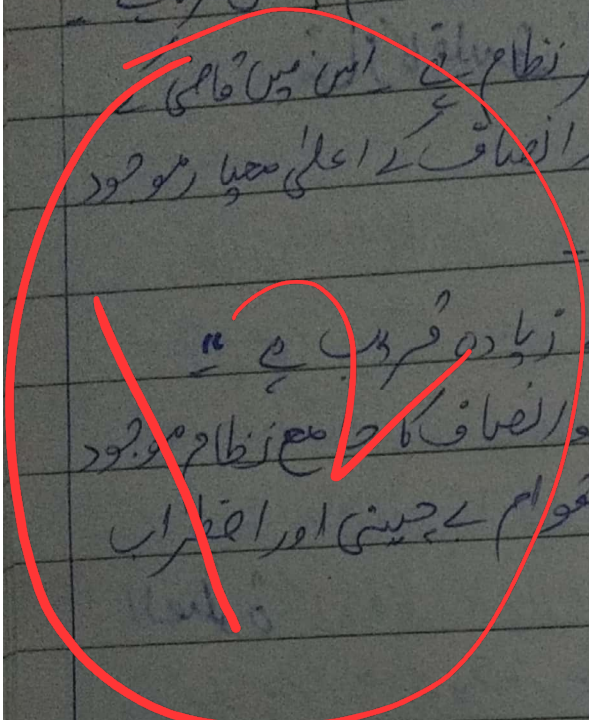 نظام ہے۔ اس میں قاضی کے
انصاف کے اعلیٰ معیار موجود
زیادہ قریب ہے"
اور انصاف کا جامع نظام موجود
اقوام بے چینی اور اضطراب